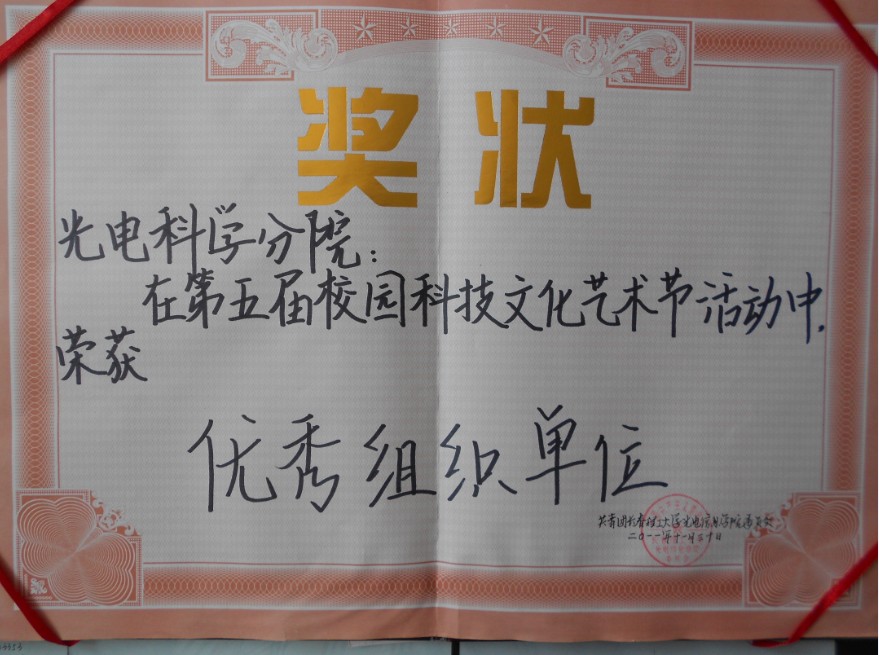 奖状
光电科学分院：
在第五届校园科技文化艺术节活动中，
荣获
优秀组织单位
共青团长春理工大学光电信息学院委员会
二〇一一年十一月三十日